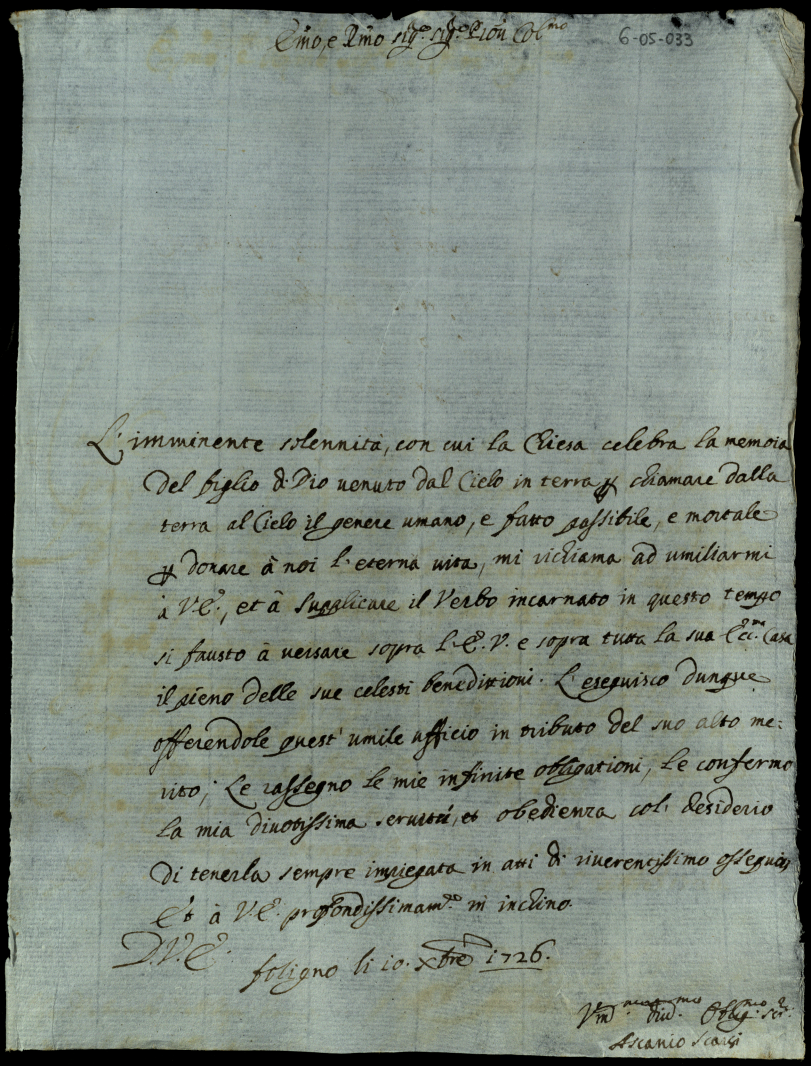 Emo, e Rmo Sig.e Sig.e Pron Col.mo
6-05-033
L'imminente solennità, con cui la Chiesa celebra la memoria
del figlio di Dio venuto dal Cielo in terra ꝑ chiamare dalla
terra al Cielo il genere umano, e fatto passibile, e mortale
ꝑ donare à noi l'eterna vita, mi richiama ad umiliarmi
à V.E., et à supplicare il Verbo incarnato in questo tempo
si fausto à versare sopra l'E.V. e sopra tutta la sua Ecc.ma Casa
il pieno delle sue celesti beneditioni. L'eseguisco dunque
offerendole quest'umile ufficio in tributo del suo alto me:
rito; Le rassegno le mie infinite obligationi, le confermo
la mia divotissima servitù, et obedienza col desiderio
di tenerla sempre impiegata in atti di riverentissimo ossequio,
Et à V.E. profondissimam.e m'inchino.
D.V.E.
foligno li 10. Xbre 1726.
div. Oblig.mo
Ascanio